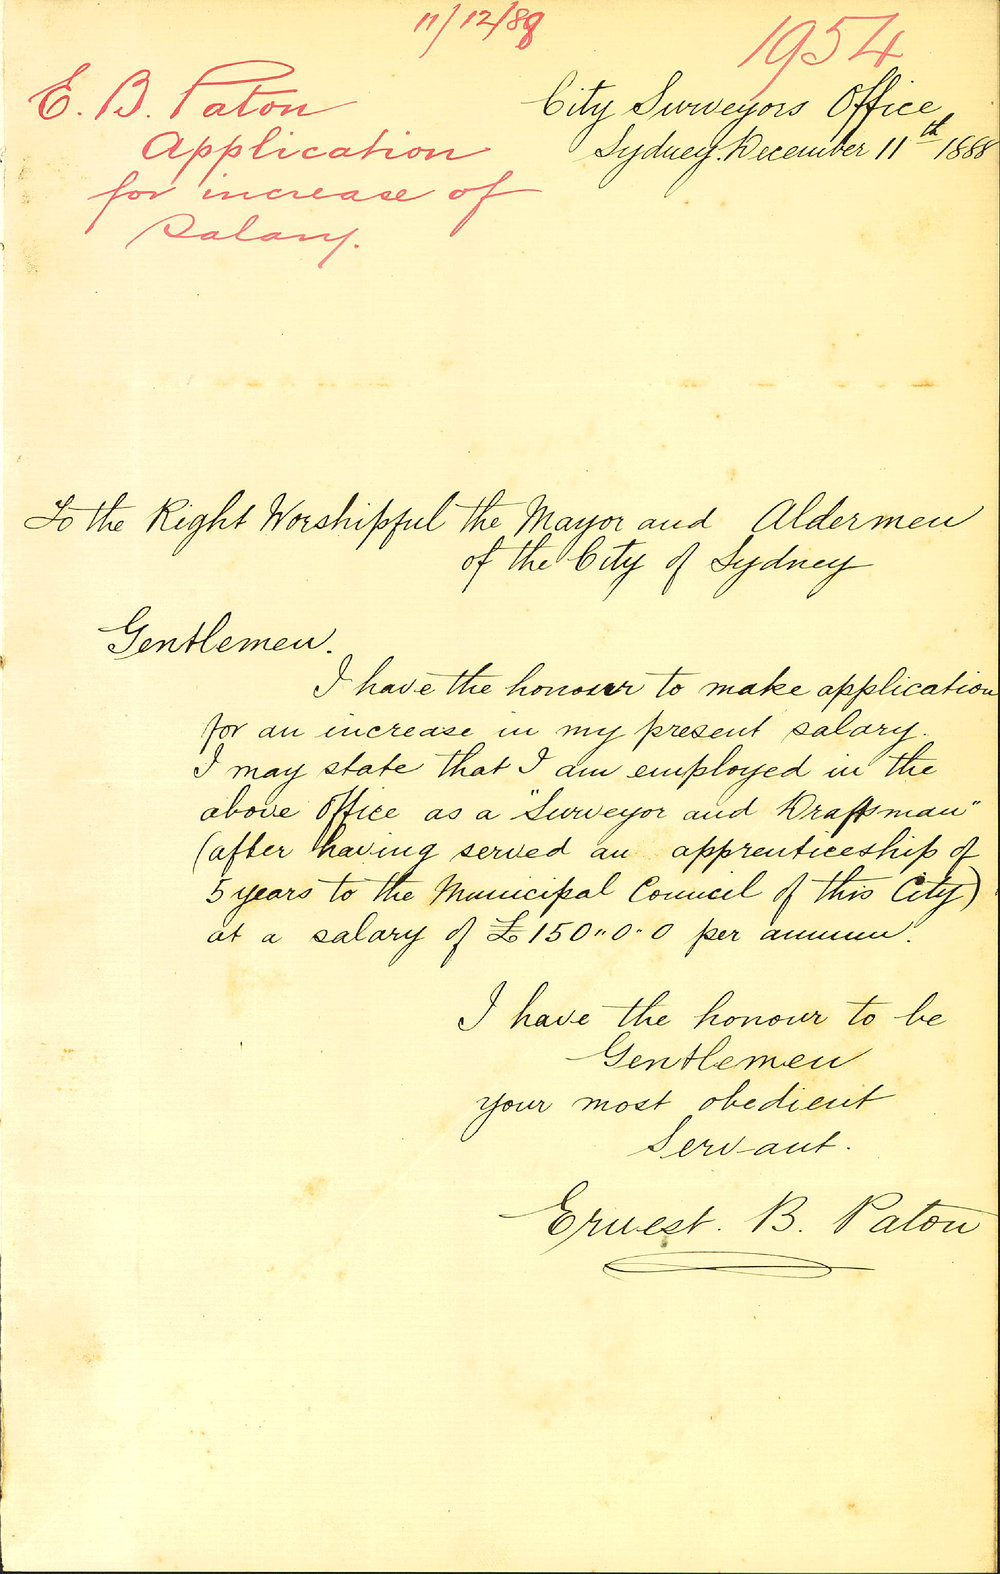 11/12/88
1954
E. B. Paton
Application
for increase of
Salary.
City Surveyors Office
Sydney. December 11th 1888
To the Right Worshipful the Mayor and Aldermen
of the City of Sydney
Gentlemen.
I have the honour to make application
for an increase in my present salary.
I may state that I am employed in the
above Office as a "Surveyor and Draftsman"
(after having served an apprenticeship of
5 years to the Municipal Council of this City)
at a salary of £150"0"0 per annum.
I have the honour to be
Gentlemen
your most obedient
Servant.
Ernest. B. Paton